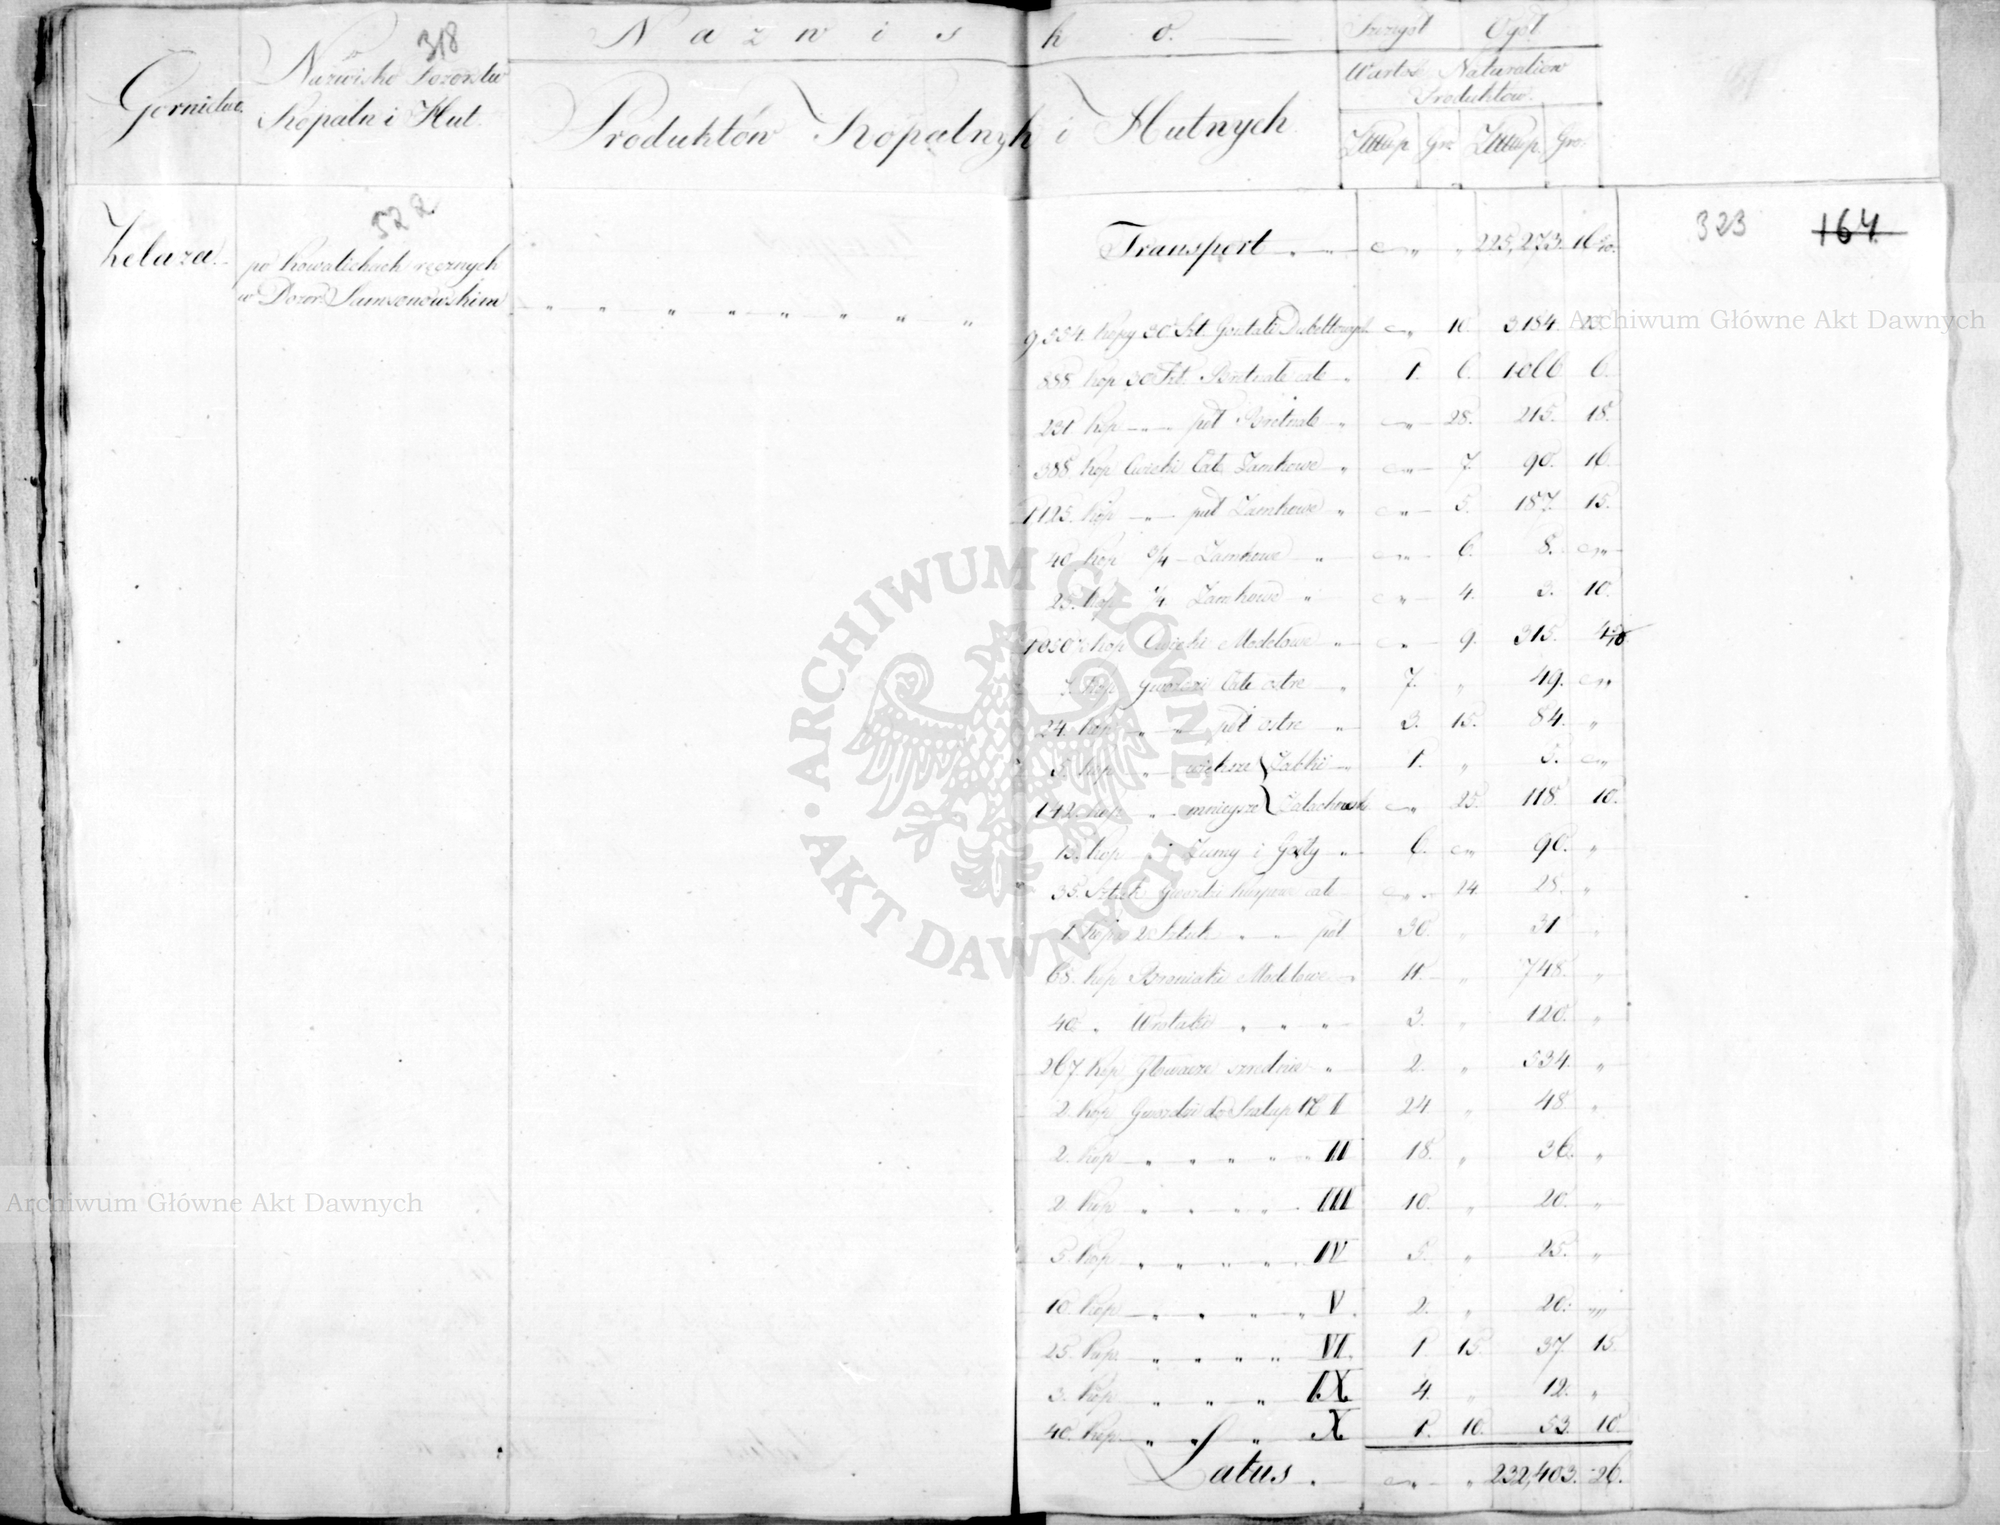 318
N a z w i s k o.
Szczegół Ogół
Gornictwo.
Nazwisko Dozorstw
Kopaln i Hut.
Produktów Kopalnych i Hutnych
Wartość Naturaliow
Produktów.
Złtt.up. Gr. Złtt.up. Gro.
522
323 164.
Żelaza
po Kowalichach ręcznych
w Dozor. Samsonowskim
Transport „ 225,273. 16
Archiwum Główne Akt Dawnych
9,554. kopy 30 Szt. Gontali Dubeltowych „ 10 3184. 25.
888. kop 30 Szt. Bretnale całe „ 1. 6. 1066 6.
231 kop „ puł Bretnale „ 28. 215. 18.
388. kop Cwieki Całe Zamkowe „ 7. 90. 16.
1125. kop „ puł Zamkowe „ 5. 187. 15.
40 kop 3/4 Zamkowe „ 6. 8. „
25. kop 1/4 Zamkowe „ 4. 3. 10.
1050 kop Cwieki Modelowe „ 9. 315.
7. kop Gwozdzi Całe ostre „ 7. „ 49. „
24. kop „ „ puł ostre „ 3. 15. 84. „
5. kop „ większe Żabki „ 1. „ 5. „
142. kop „ mnieysze „ 25. 118. 10.
15. kop „ i Goxty „ 6. „ 90. „
35. Sztuk Gwozdzi całe „ 24. 28. „
1 kopy 2 Sztuk „ „ puł 30. „ 31 „
68. kop Broniaki Modelowe „ 11. „ 748. „
40 „ Wrotaki „ „ „ 3. „ 120. „
267. kop Głowacze szrednie „ 2. „ 534. „
2. kop Gwozdzi do Szalup No I 24. „ 48. „
2. kop „ „ „ „ „ II 18. „ 36. „
2. kop „ „ „ „ „ III 10. „ 20. „
5 kop „ „ „ „ „ IV 5. „ 25. „
10. kop „ „ „ „ „ V. 2. „ 20. „
25. kop. „ „ „ „ VI. 1. 15. 37. 15.
3. kop „ „ „ IX 4. „ 12. „
40. kop. „ „ „ X 1. 10. 53. 10.
Latus. „ 232,403. 26.
Archiwum Główne Akt Dawnych
ARCHIWUM GŁÓWNE AKT DAWNYCH